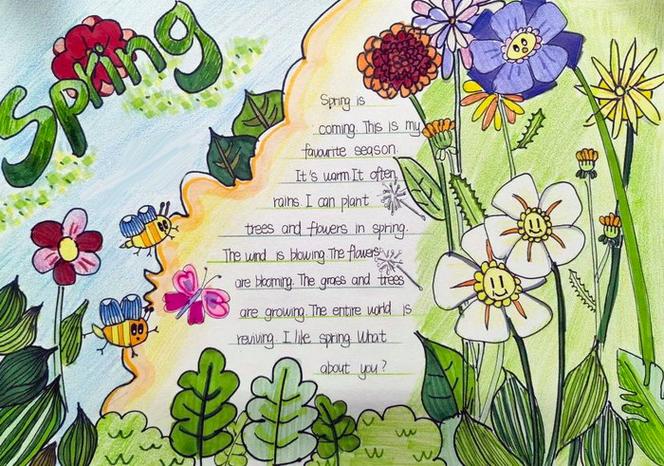 Spring
Spring is
coming. This is my
favourite season.
It's warm. It often
rains I can plant
trees and flowers in spring.
The wind is blowing. The flowers
are blooming. The grass and trees
are growing. The entire world is
reviving. I like spring. What
about you?